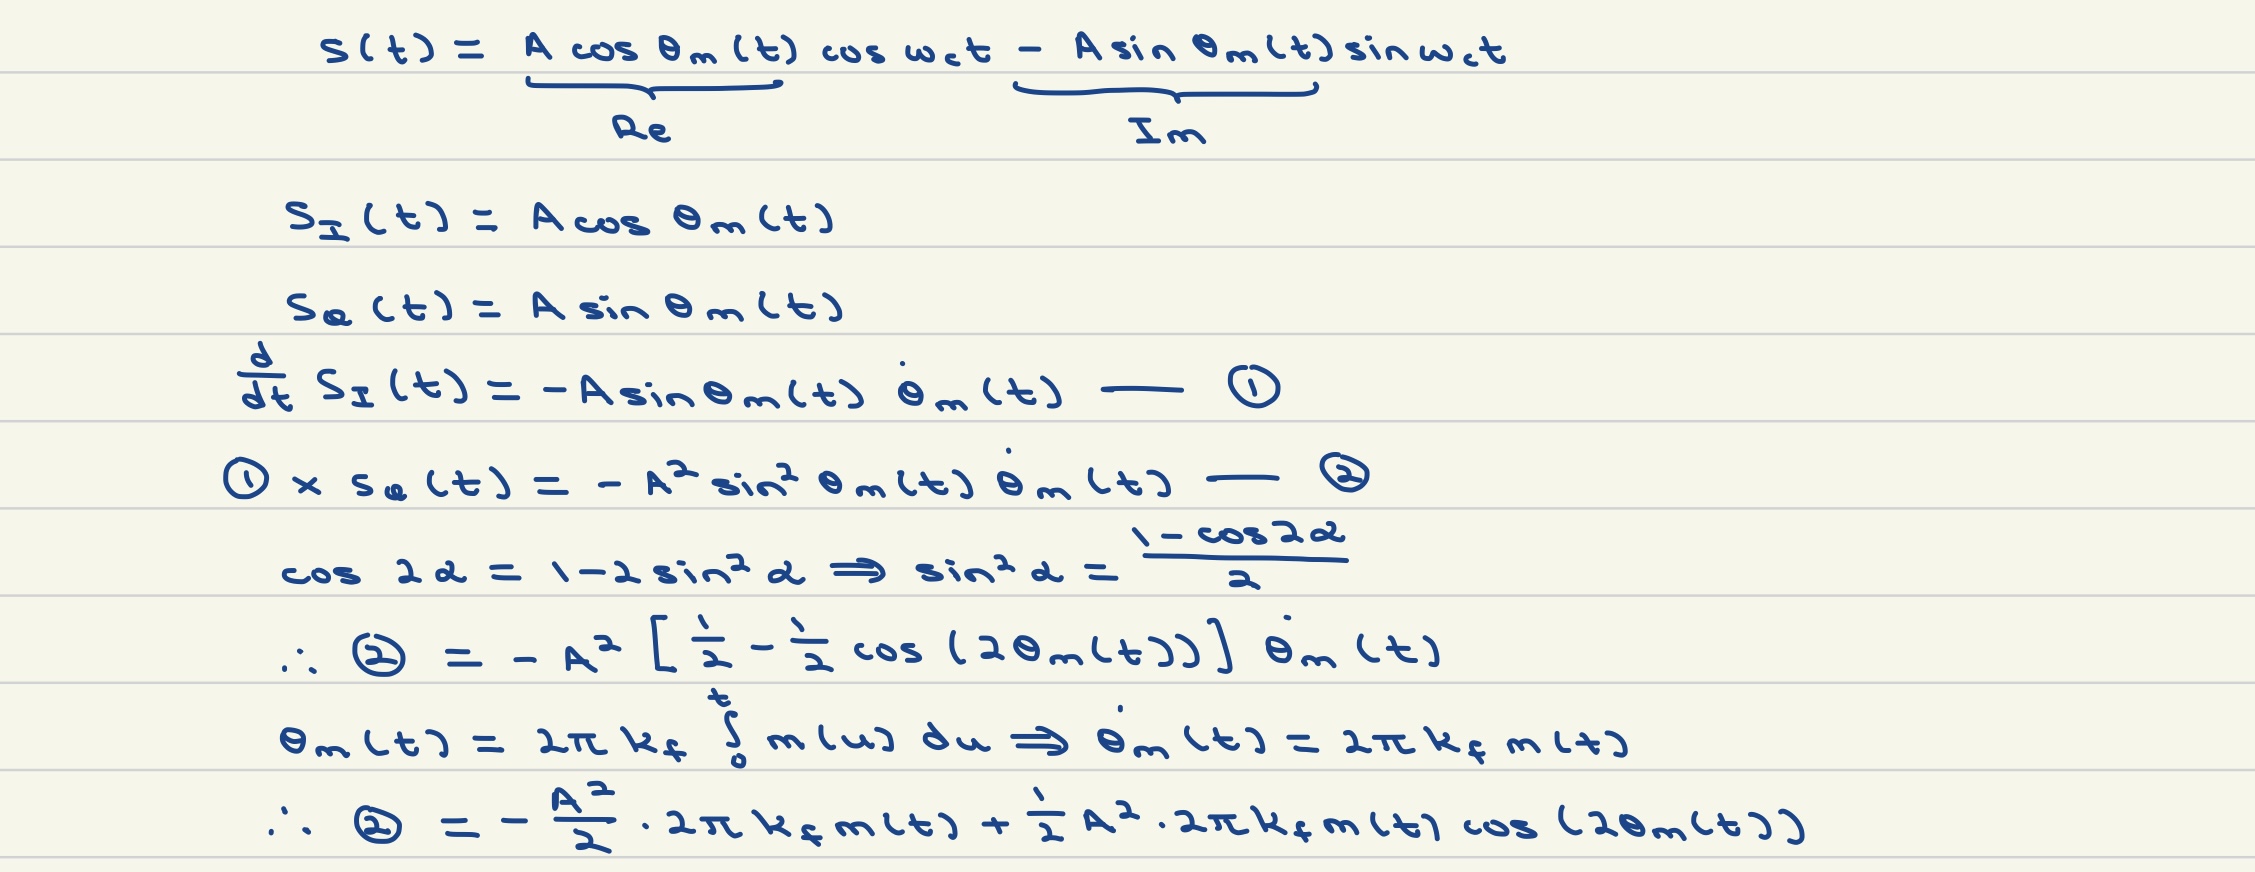 s(t) = A cos θₘ(t) cos ω꜀t − A sin θₘ(t) sin ω꜀t
Re Im
S_I(t) = A cos θₘ(t)
S_Q(t) = A sin θₘ(t)
d/dt S_I(t) = −A sin θₘ(t) θ̇ₘ(t) — ①
① × S_Q(t) = −A² sin² θₘ(t) θ̇ₘ(t) — ②
cos 2α = 1 − 2 sin² α ⇒ sin² α = (1 − cos 2α)/2
∴ ② = −A² [1/2 − 1/2 cos (2θₘ(t))] θ̇ₘ(t)
θₘ(t) = 2π k_f ∫₀ᵗ m(u) du ⇒ θ̇ₘ(t) = 2π k_f m(t)
∴ ② = − A²/2 · 2π k_f m(t) + 1/2 A² · 2π k_f m(t) cos (2θₘ(t))